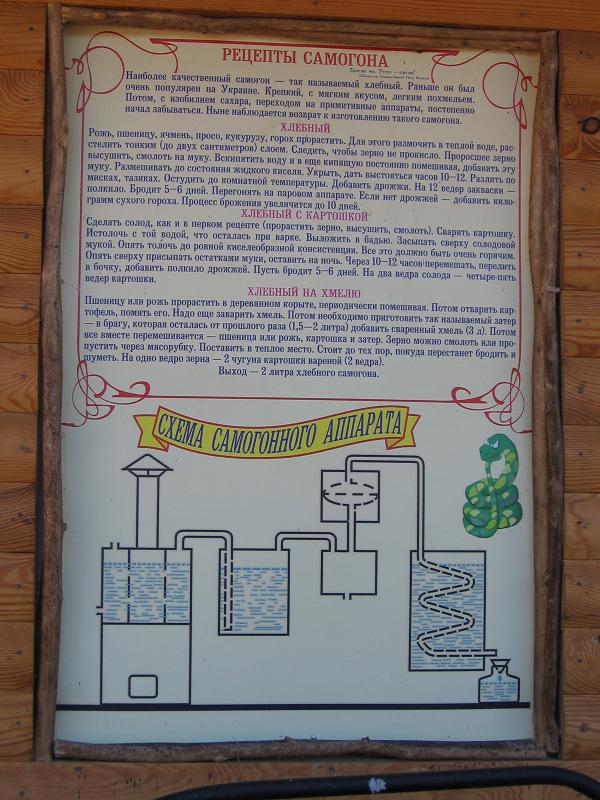 РЕЦЕПТЫ САМОГОНА
Наиболее качественный самогон — так называемый хлебный. Раньше он был
очень популярен на Украине. Крепкий, с мягким вкусом, легким похмельем.
Потом, с изобилием сахара, переходом на примитивные аппараты, постепенно
начал забываться. Ныне наблюдается возврат к изготовлению такого самогона.
ХЛЕБНЫЙ
Рожь, пшеницу, ячмень, просо, кукурузу, горох прорастить. Для этого размочить в теплой воде, рас-
стелить тонким (до двух сантиметров) слоем. Следить, чтобы зерно не прокисло. Проросшее зерно
высушить, смолоть на муку. Вскипятить воду и в еще кипящую постоянно помешивая, добавить эту
муку. Размешивать до состояния жидкого киселя. Укрыть, дать выстояться часов 10—12. Разлить по
мисках, тазиках. Остудить до комнатной температуры. Добавить дрожжи. На 12 ведер закваски —
полкило. Бродит 5—6 дней. Перегонять на паровом аппарате. Если нет дрожжей — добавить кило-
грамм сухого гороха. Процесс брожения увеличится до 10 дней.
ХЛЕБНЫЙ С КАРТОШКОЙ
Сделать солод, как и в первом рецепте (прорастить зерно, высушить, смолоть). Сварить картошку.
Истолочь с той водой, что осталась при варке. Выложить в бадью. Засыпать сверху солодовой
мукой. Опять толочь до ровной киселеобразной консистенции. Все это должно быть очень горячим.
Опять сверху присыпать остатками муки, оставить на ночь. Через 10—12 часов перемешать, перелить
в бочку, добавить полкило дрожжей. Пусть бродит 5—6 дней. На два ведра солода — четыре-пять
ведер картошки.
ХЛЕБНЫЙ НА ХМЕЛЮ
Пшеницу или рожь прорастить в деревянном корыте, периодически помешивая. Потом отварить кар-
тофель, помять его. Надо еще заварить хмель. Потом необходимо приготовить так называемый затер
— в брагу, которая осталась от прошлого раза (1,5—2 литра) добавить сваренный хмель (3 л). Потом
все вместе перемешивается — пшеница или рожь, картошка и затер. Зерно можно смолоть или про-
пустить через мясорубку. Поставить в теплое место. Стоит до тех пор, покуда перестанет бродить и
шуметь. На одно ведро зерна — 2 чугуна картошки вареной (2 ведра).
Выход — 2 литра хлебного самогона.
СХЕМА САМОГОННОГО АППАРАТА